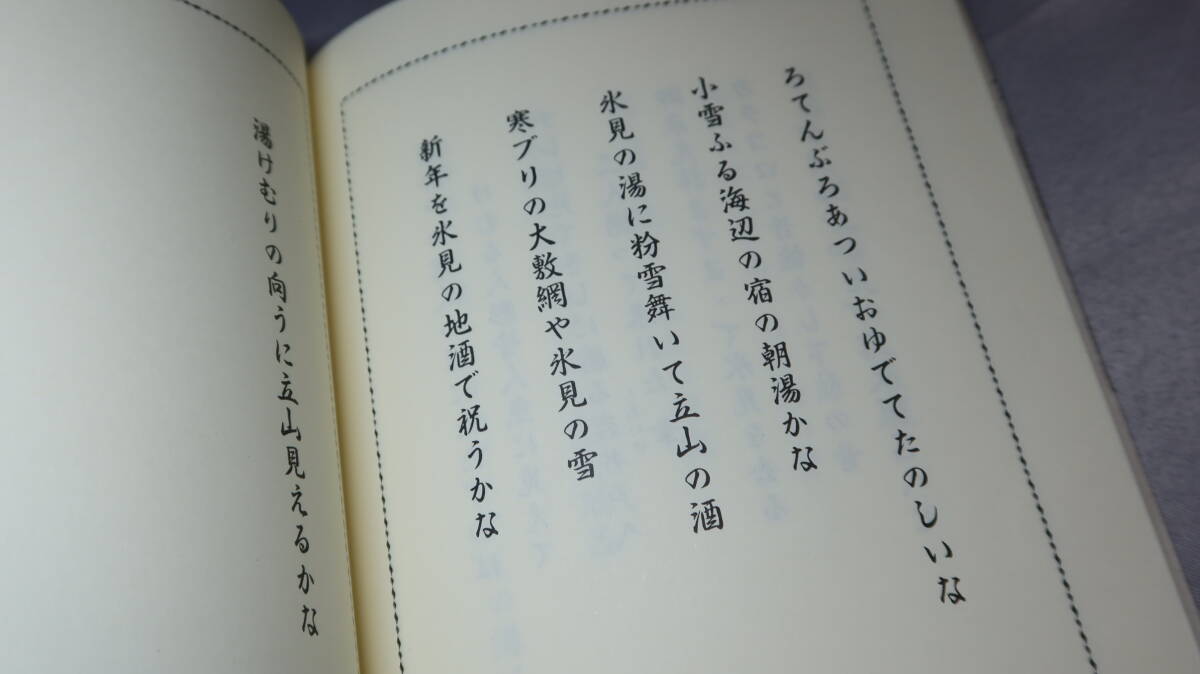 ろてんぶろあついおゆででてたのしいな
小雪ふる海辺の宿の朝湯かな
氷見の湯に粉雪舞いて立山の酒
寒ブリの大敷網や氷見の雪
新年を氷見の地酒で祝うかな
湯けむりの向うに立山見えるかな